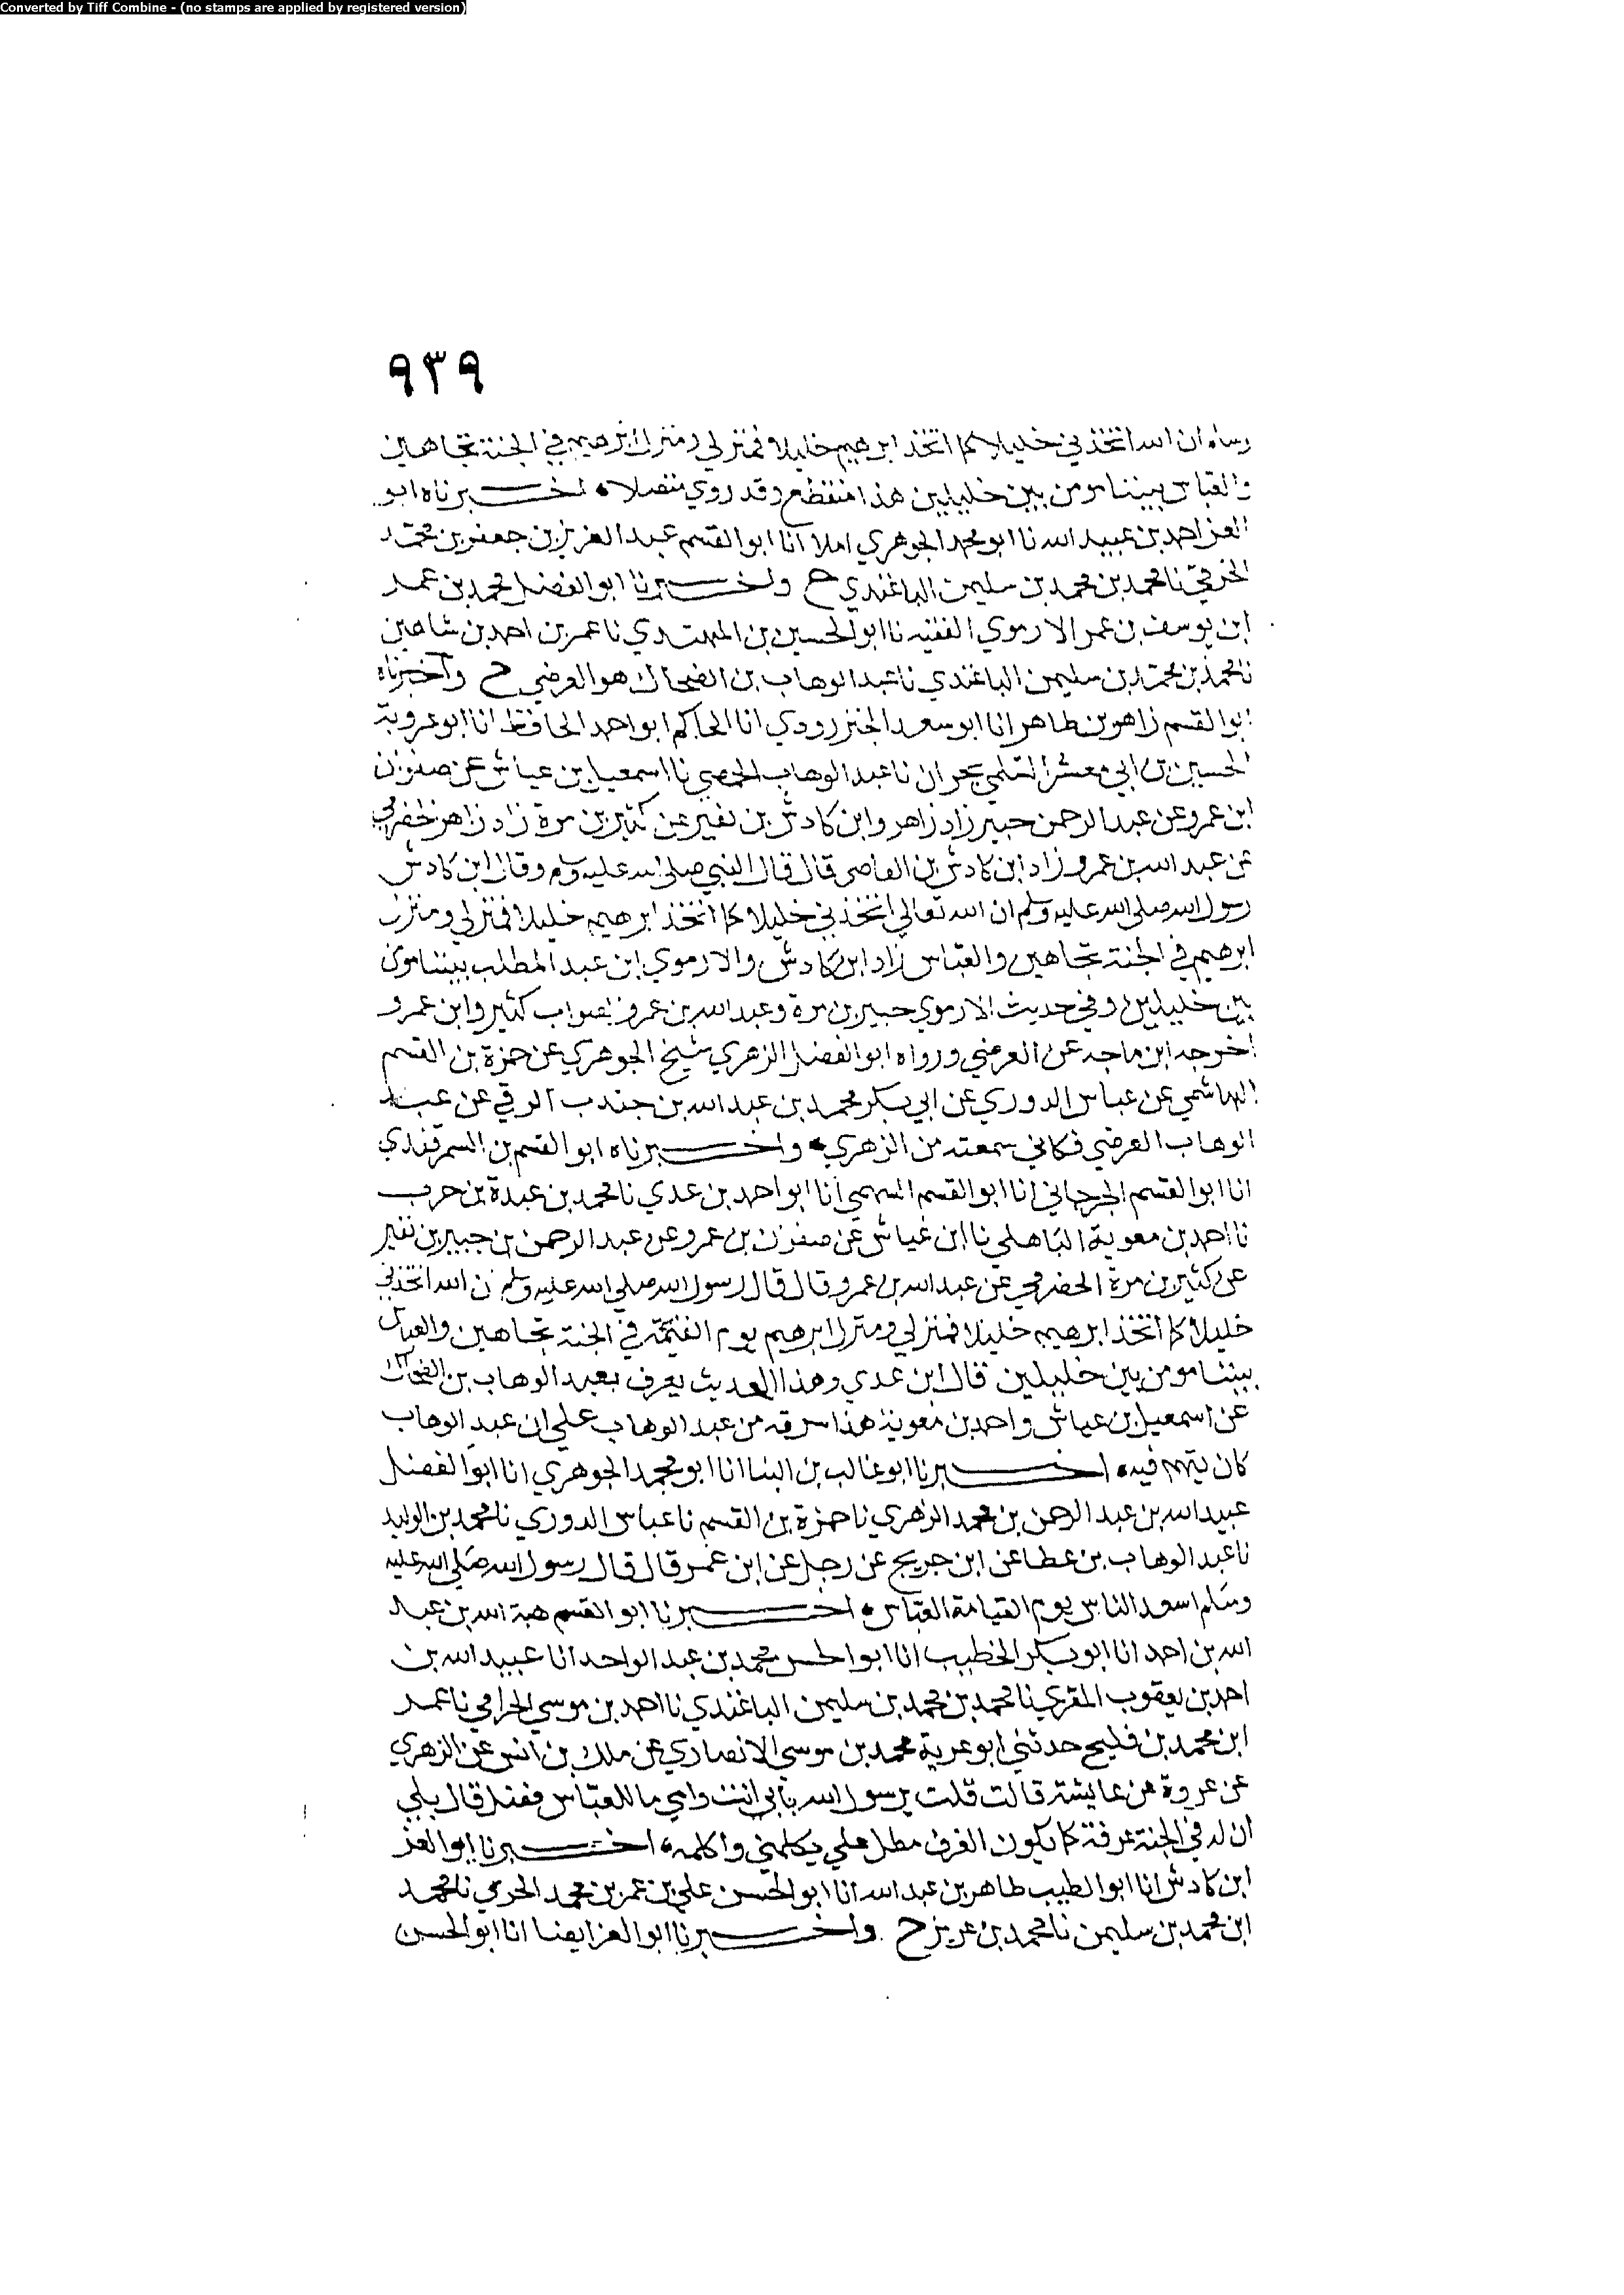 Converted by Tiff Combine - (no stamps are applied by registered version)
٩٣٩
وسلم ان الله اتخذني خليلا كما اتخذ ابرهيم خليلا فمنزلي ومنزل ابرهيم في الجنة تجاهين
والعباس بيننا مومن بين خليلين هذا منقطع وقد روي متصلا ه اخبرناه ابو
العز احمد بن عبيد الله نا ابو محمد الجوهري املا انا ابو القسم عبد العزيز بن جعفر بن محمد
الخرقي نا محمد بن محمد بن سليمن الباغندي ح واخبرنا ابو الفضل محمد بن عمر
ابن يوسف بن عمر الارموي الفقيه نا ابو الحسين بن المهتدي نا عمر بن احمد بن شاهين
نا محمد بن محمد بن سليمن الباغندي نا عبد الوهاب بن الضحاك هو العرضي ح واخبرناه
ابو القسم زاهر بن طاهر انا ابو سعد الجنزرودي انا الحاكم ابو احمد الحافظ انا ابو عروبة
الحسين بن ابي معشر السلمي بحران نا عبد الوهاب الحمصي نا اسمعيل بن عياش عن صفوان
ابن عمرو عن عبد الرحمن جبير زاد زاهر وابن كادش بن نفير عن كثير بن مرة زاد زاهر الحضرمي
عن عبد الله بن عمرو زاد ابن كادش بن العاصي قال قال النبي صلى الله عليه وسلم وقال ابن كادش
رسول الله صلى الله عليه وسلم ان الله تعالى اتخذني خليلا كما اتخذ ابرهيم خليلا فمنزلي ومنزل
ابرهيم في الجنة تجاهين والعباس زاد ابن كادش والارموي ابن عبد المطلب بيننا مومن
بين خليلين وفي حديث الارموي جبير بن مرة وعبد الله بن عمر والصواب كثير وابن عمرو
اخرجه ابن ماجه عن العرضي ورواه ابو الفضل الزهري شيخ الجوهري عن حمزة بن القسم
الهاشمي عن عباس الدوري عن ابي بكر محمد بن عبد الله بن جندب الرقي عن عبد
الوهاب العرضي فكاني سمعته من الزهري ه واخبرناه ابو القسم بن السمرقندي
انا ابو القسم الجرجاني انا ابو القسم السهمي انا ابو احمد بن عدي نا محمد بن عبدة بن حرب
نا احمد بن معوية الباهلي نا ابن عياش عن صفوان بن عمرو عن عبد الرحمن بن جبير بن نفير
عن كثير بن مرة الحضرمي عن عبد الله بن عمرو قال قال رسول الله صلى الله عليه وسلم ان الله اتخذني
خليلا كما اتخذ ابرهيم خليلا فمنزلي ومنزل ابرهيم يوم القيمة في الجنة تجاهين والعباس
بيننا مومن بين خليلين قال ابن عدي وهذا الحديث يعرف بعبد الوهاب بن الضحاك
عن اسمعيل بن عياش واحمد بن معوية هذا سرقه من عبد الوهاب على ان عبد الوهاب
كان يتهم فيه ه اخبرنا ابو غالب بن البنا انا ابو محمد الجوهري انا ابو الفضل
عبيد الله بن عبد الرحمن بن محمد الزهري نا حمزة بن القسم نا عباس الدوري نا محمد بن الوليد
نا عبد الوهاب بن عطا عن ابن جريج عن رجل عن ابن عمر قال قال رسول الله صلى الله عليه
وسلم اسعد الناس يوم القيامة العباس ه اخبرنا ابو القسم هبة الله بن عبد
الله بن احمد انا ابو بكر الخطيب انا ابو الحسن محمد بن عبد الواحد انا عبيد الله بن
احمد بن يعقوب المقري نا محمد بن محمد بن سليمن الباغندي نا احمد بن موسى الحرامي نا عمر
ابن محمد بن فليح حدثني ابو غزية محمد بن موسى الانصاري عن ملك بن انس عن الزهري
عن عروة عن عايشة قالت قلت يرسول الله بابي انت وامي ما للعباس فضل قال بلى
ان له في الجنة غرفة كما يكون الغرف مطل علي يكلمني واكلمه ه اخبرنا ابو العز
ابن كادش انا ابو الطيب طاهر بن عبد الله انا ابو الحسن علي بن عمر بن محمد الحربي نا محمد
ابن محمد بن سليمن نا محمد بن عزيز ح واخبرنا ابو العز ايضا انا ابو الحسن